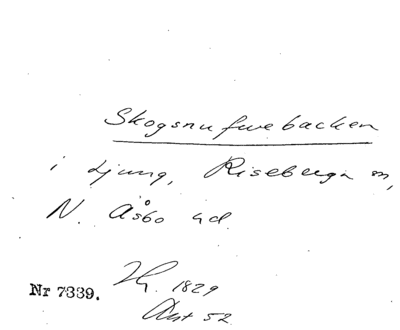 Skogsnufwebacken
i Ljung, Riseberga sn,
N. Åsbo hd.
Hg. 1829
Nr 7339.
Akt 52